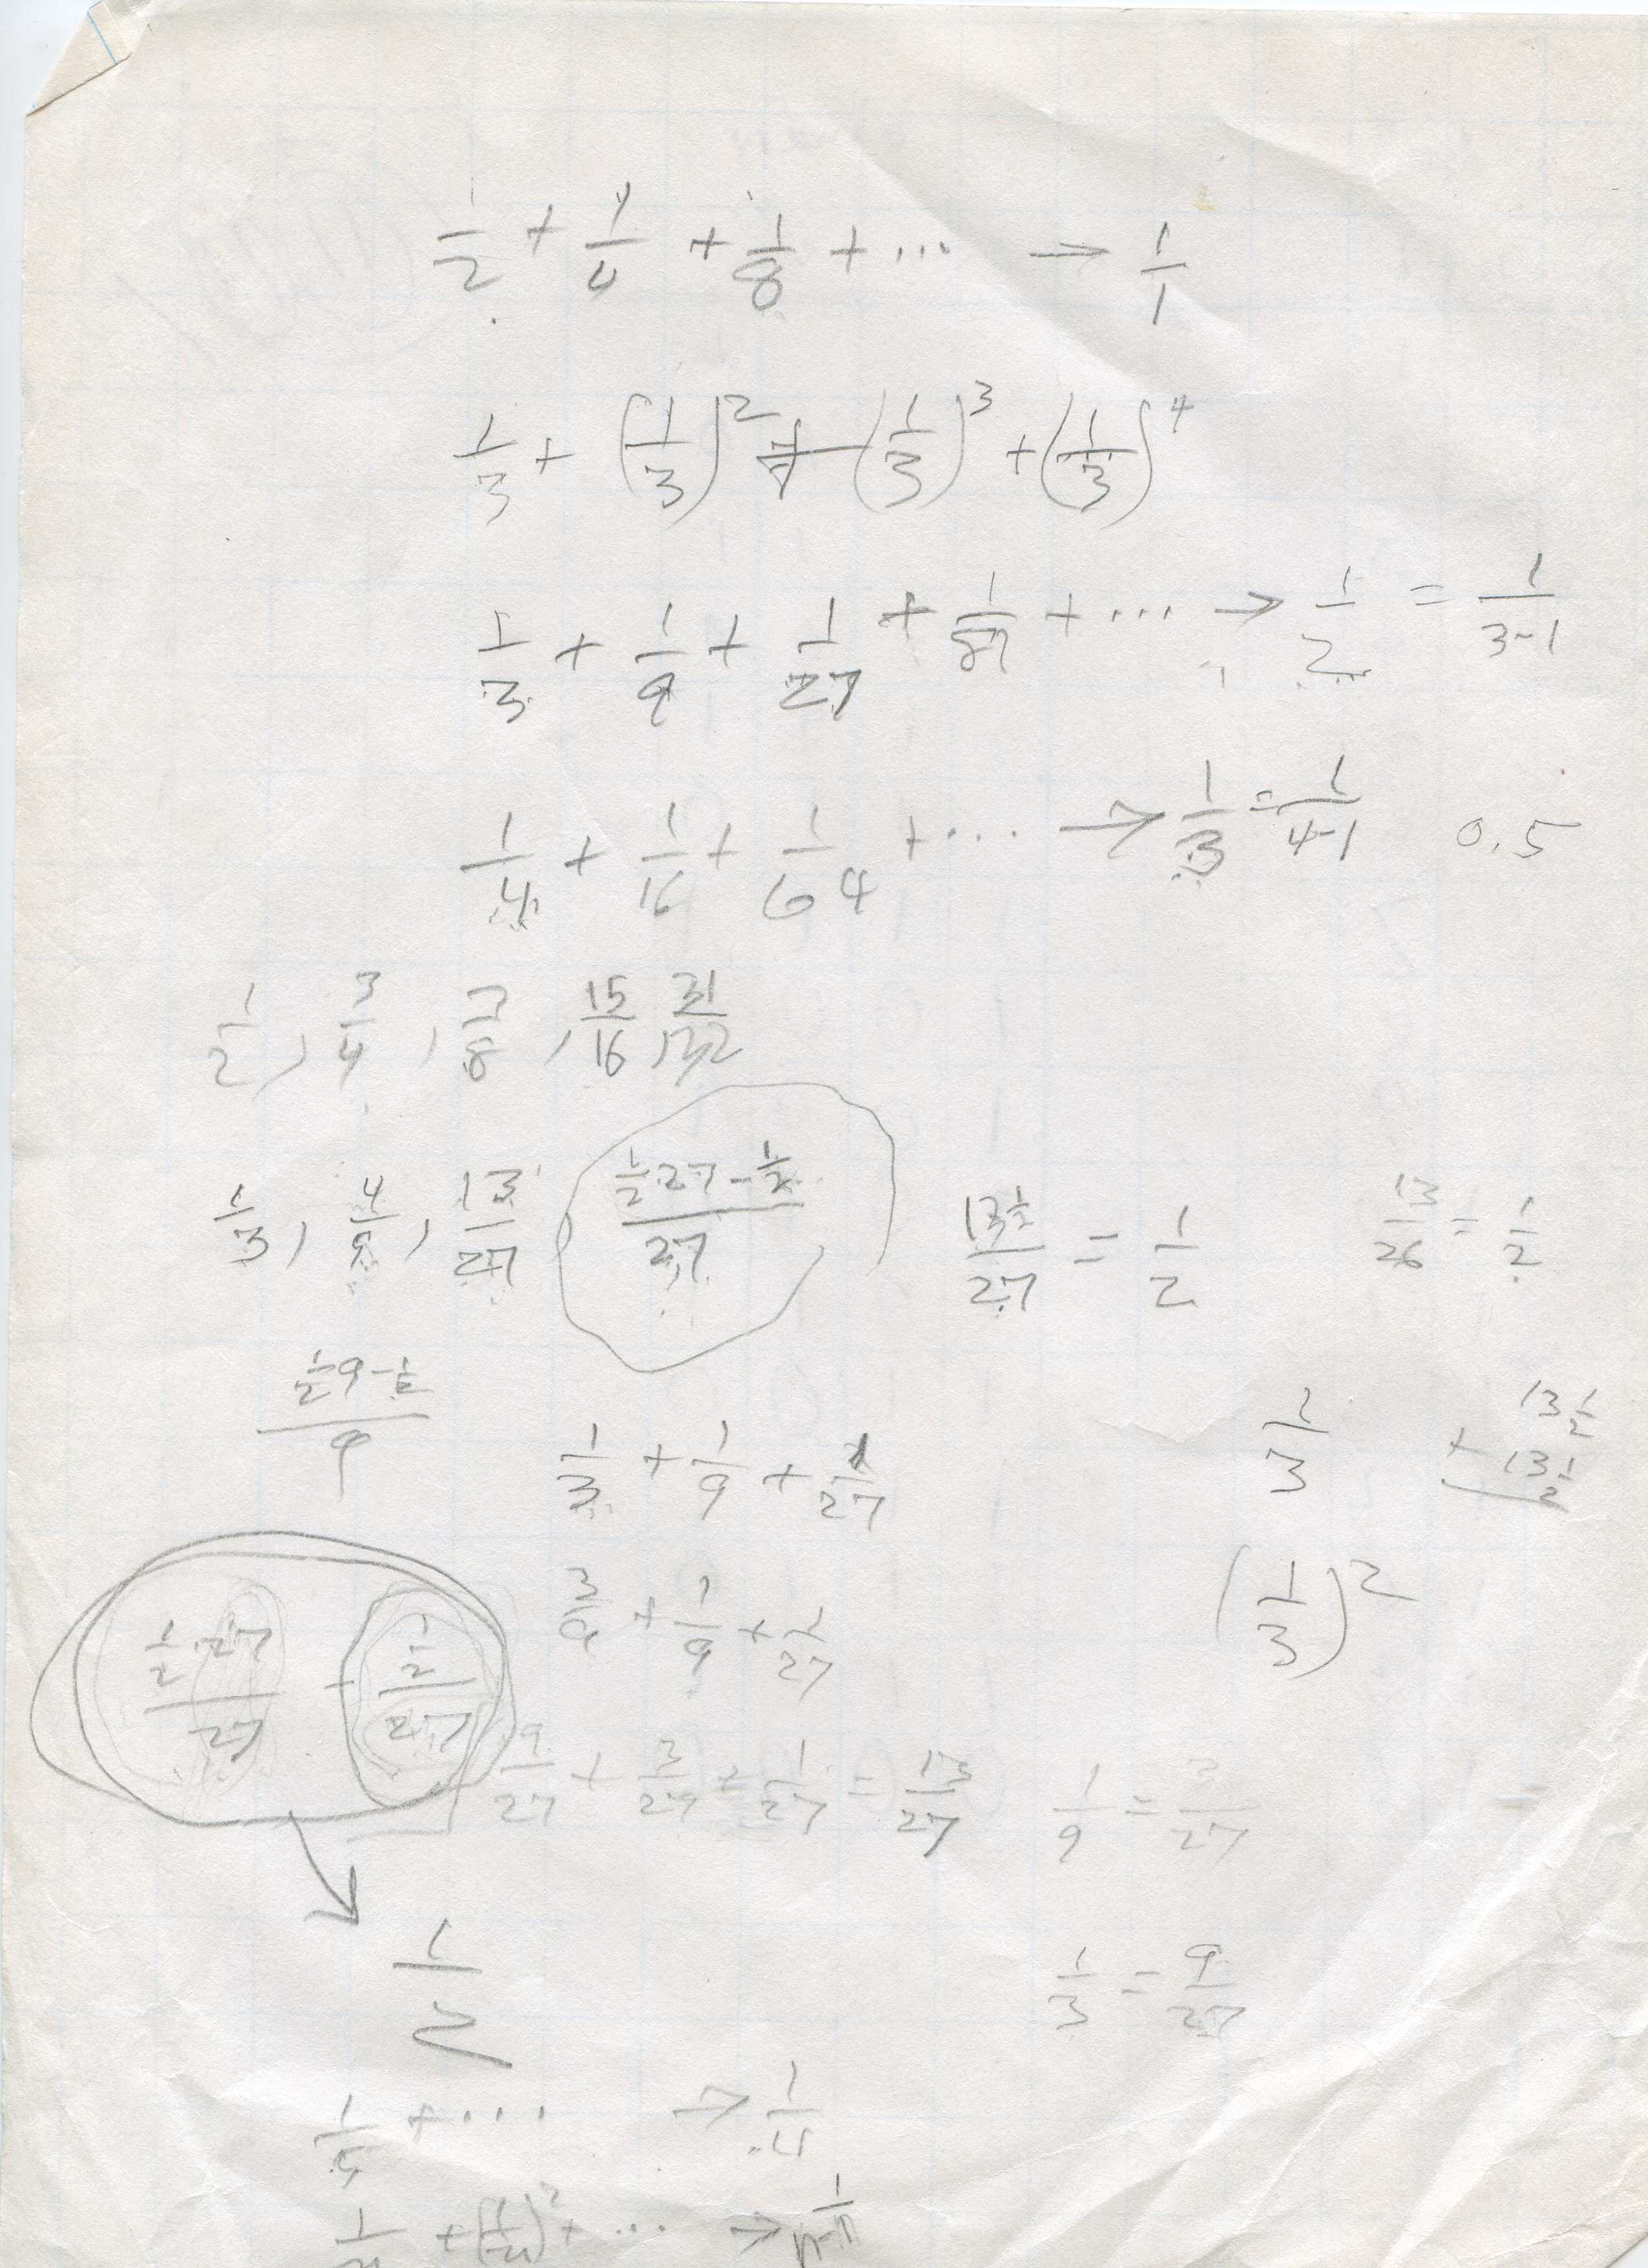 1/2 + 1/4 + 1/8 + ... → 1/1
1/3 + (1/3)^2 + (1/3)^3 + (1/3)^4
1/3 + 1/9 + 1/27 + 1/87 + ... → 1/2 = 1/(3-1)
1/4 + 1/16 + 1/64 + ... → 1/3 = 1/(4-1) 0.5
1/2, 3/4, 7/8, 15/16, 31/32
1/3, 4/9, 13/27 (1/2·27 - 1/2)/27 , 13 1/2/27 = 1/2 13/26 = 1/2
(1/2 9 - 1/2)/9
1/3 + 1/9 + 1/27 1/3 13 1/2 + 13 1/2
3/9 + 1/9 + 1/27 (1/3)^2
(1/2·27)/27 - (1/2)/27
9/27 + 3/27 + 1/27 = 13/27 1/9 = 3/27
1/2 1/3 = 9/27
1/5 + ... → 1/4
1/n + (1/n)^2 + ... →